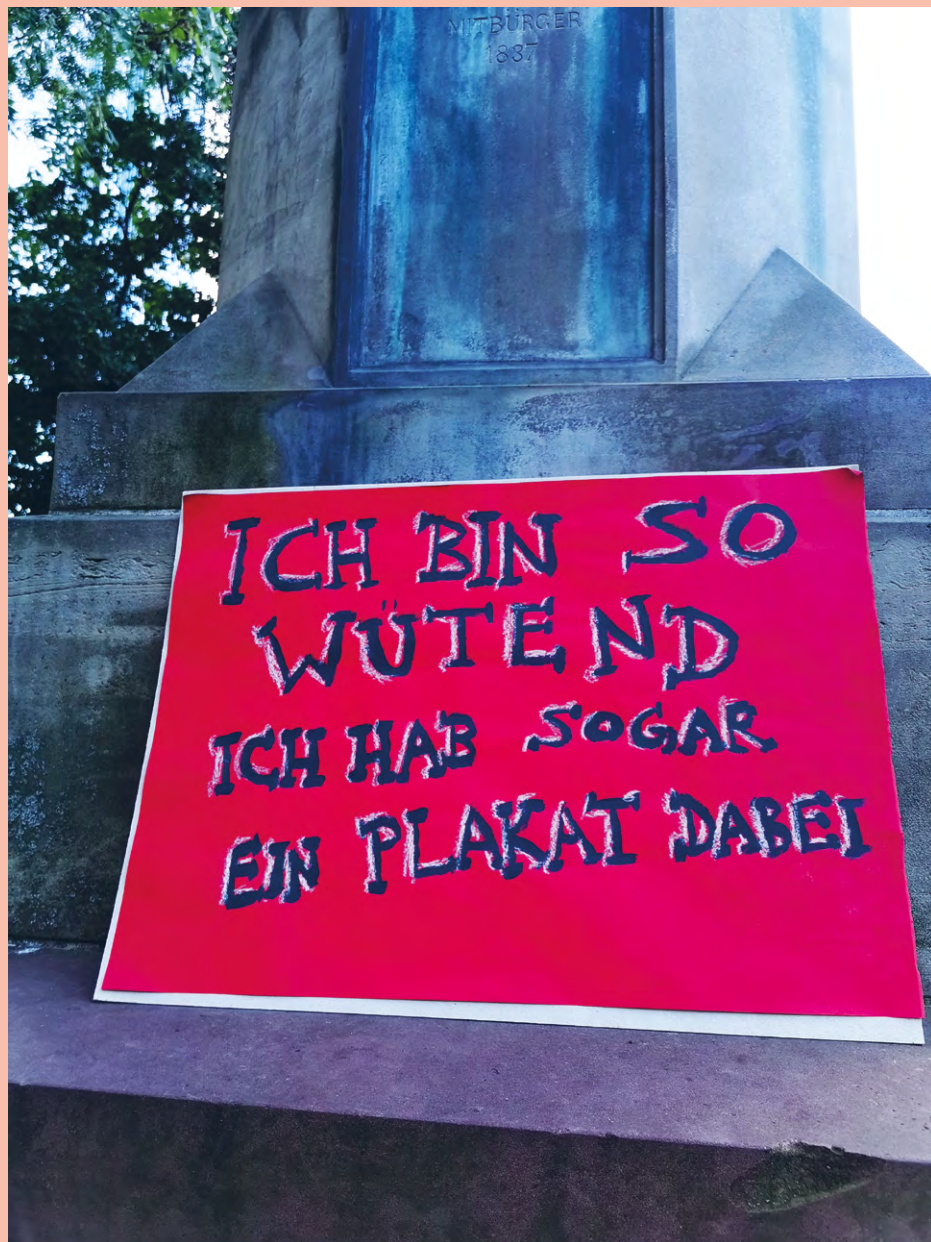 MITBÜRGER
1837
ICH BIN SO
WÜTEND
ICH HAB SOGAR
EIN PLAKAT DABEI